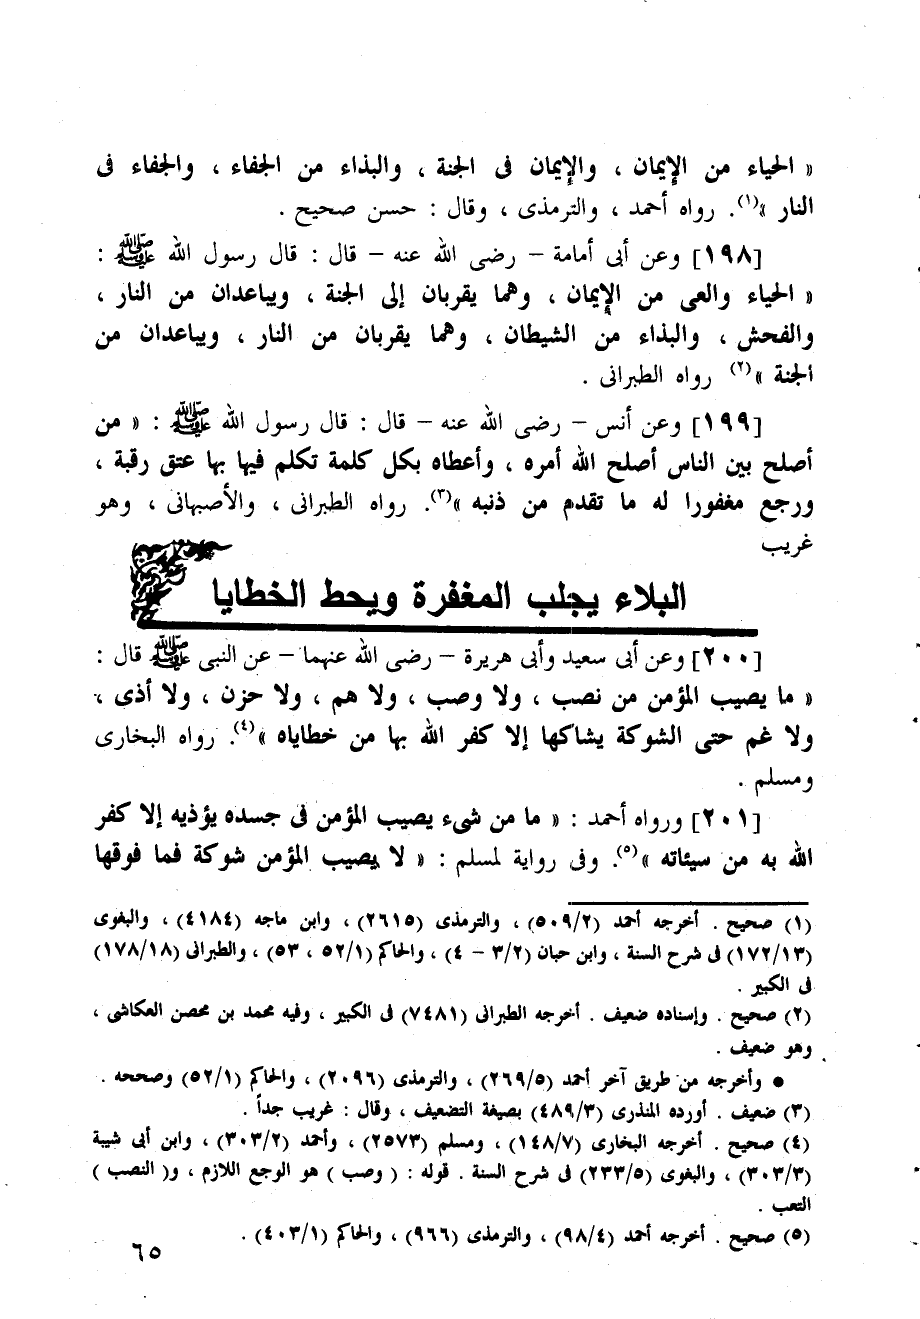 « الحياء من الإيمان ، والإيمان فى الجنة ، والبذاء من الجفاء ، والجفاء فى
النار »(١). رواه أحمد ، والترمذى ، وقال : حسن صحيح .
[١٩٨] وعن أبى أمامة – رضى الله عنه – قال : قال رسول الله ﷺ :
« الحياء والعى من الإيمان ، وهما يقربان إلى الجنة ، ويباعدان من النار ،
والفحش ، والبذاء من الشيطان ، وهما يقربان من النار ، ويباعدان من
الجنة »(٢) رواه الطبرانى .
[١٩٩] وعن أنس – رضى الله عنه – قال : قال رسول الله ﷺ : « من
أصلح بين الناس أصلح الله أمره ، وأعطاه بكل كلمة تكلم فيها بها عتق رقبة ،
ورجع مغفورا له ما تقدم من ذنبه »(٣). رواه الطبرانى ، والأصبهانى ، وهو
غريب
البلاء يجلب المغفرة ويحط الخطايا
[٢٠٠] وعن أبى سعيد وأبى هريرة – رضى الله عنهما – عن النبى ﷺ قال :
« ما يصيب المؤمن من نصب ، ولا وصب ، ولا هم ، ولا حزن ، ولا أذى ،
ولا غم حتى الشوكة يشاكها إلا كفر الله بها من خطاياه »(٤). رواه البخارى
ومسلم .
[٢٠١] ورواه أحمد : « ما من شىء يصيب المؤمن فى جسده يؤذيه إلا كفر
الله به من سيئاته »(٥). وفى رواية لمسلم : « لا يصيب المؤمن شوكة فما فوقها
(١) صحيح . أخرجه أحمد (٥٠٩/٢) ، والترمذى (٢٦١٥) ، وابن ماجه (٤١٨٤) ، والبغوى
(١٧٢/١٣) فى شرح السنة ، وابن حبان (٣/٢ – ٤) ، والحاكم (٥٢/١ ، ٥٣) ، والطبرانى (١٧٨/١٨)
فى الكبير .
(٢) صحيح . وإسناده ضعيف . أخرجه الطبرانى (٧٤٨١) فى الكبير ، وفيه محمد بن محصن العكاشى ،
وهو ضعيف .
● وأخرجه من طريق آخر أحمد (٢٦٩/٥) ، والترمذى (٢٠٩٦) ، والحاكم (٥٢/١) وصححه .
(٣) ضعيف . أورده المنذرى (٤٨٩/٣) بصيغة التضعيف ، وقال : غريب جداً .
(٤) صحيح . أخرجه البخارى (١٤٨/٧) ، ومسلم (٢٥٧٣) ، وأحمد (٣٠٣/٢) ، وابن أبى شيبة
(٣٠٣/٣) ، والبغوى (٢٣٣/٥) فى شرح السنة . قوله : ( وصب ) هو الوجع اللازم ، و( النصب )
التعب .
(٥) صحيح . أخرجه أحمد (٩٨/٤) ، والترمذى (٩٦٦) ، والحاكم (٤٠٣/١) .
٦٥